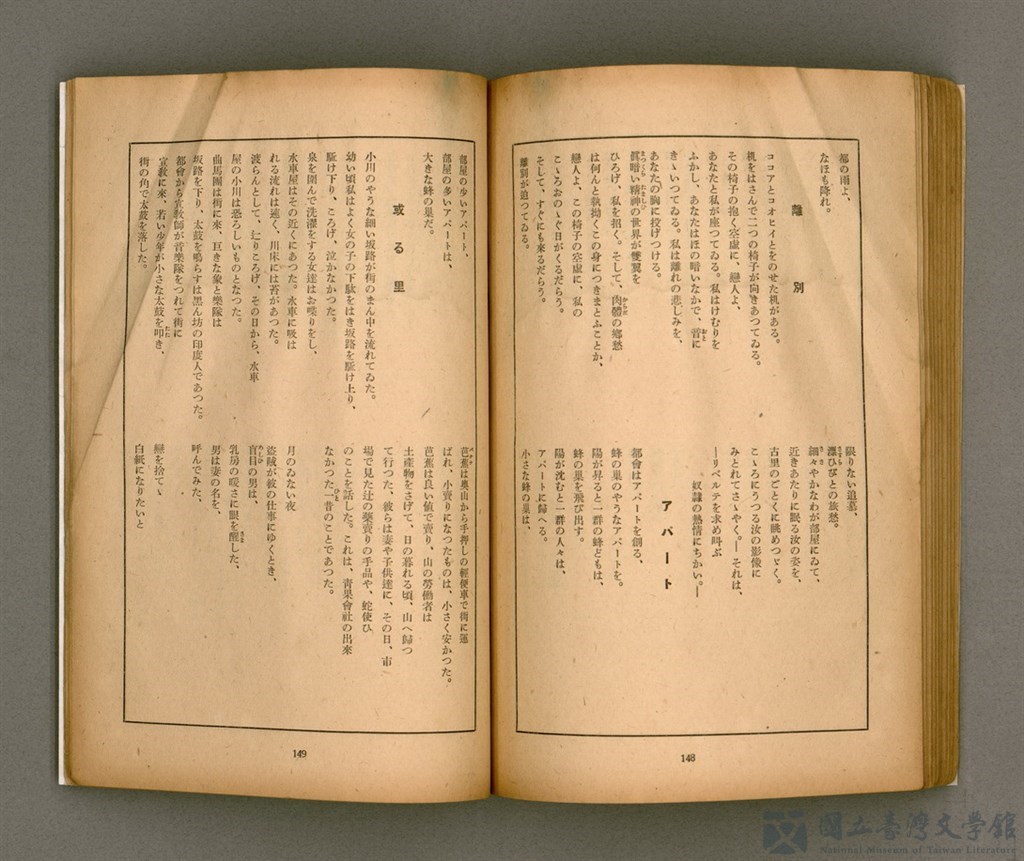 都の雨よ、
なほも降れ。
離別
ココアとコオヒイとをのせた机がある。
机をはさんで二つの椅子が向きあつてゐる。
その椅子の抱く空虚に、戀人よ、
あなたと私が座つてゐる。私はけむりを
ふかし、あなたはほの暗いなかで、音に
きゝいつてゐる。私は離れの悲しみを、
あなたの胸に投げつける。
眞暗い精神の世界が雙翼を
ひろげ、私を招く。そして、肉體の鄕愁
は何んと執拗くこの身につきまとふことか、
戀人よ、この椅子の空虚に、私の
こゝろおのゝく日がくるだらう。
そして、すぐにも來るだらう。
離別が迫つてゐる。
限りない追慕、
漂ひびとの旅愁。
細々やかなわが部屋にゐて、
近きあたりに眠る汝の姿を、
古里のごとくに眺めつゞく。
こゝろにうつる汝の影像に
みとれてさゝやく。―それは、
―リベルテを求め叫ぶ
奴隷の熱情にちかい。―
アパート
都會はアパートを創る、
蜂の巣のやうなアパートを。
陽が昇ると一群の蜂どもは、
蜂の巣を飛び出す。
陽が沈むと一群の人々は、
アパートに歸へる。
小さな蜂の巣は、
部屋の少いアパート、
部屋の多いアパートは、
大きな蜂の巣だ。
或る里
小川のやうな細い坂路が街のまん中を流れてゐた。
幼い頃私はよく女の子の下駄をはき坂路を駈け上り、
駈け下り、ころげ、泣かなかつた。
泉を圍んで洗濯をする女達はお喋りをし、
水車屋はその近くにあつた。水車に吸は
れる流れは速く、川床には苔があつた。
渡らんとして、辷りころげ、その日から、水車
屋の小川は恐ろしいものとなつた。
曲馬團は街に來、巨きな象と樂隊は
坂路を下り、太鼓を鳴らすは黒ん坊の印度人であつた。
都會から宣敎師が音樂隊をつれて街に
宣敎に來、若い少年が小さな太鼓を叩き、
街の角で太鼓を落した。
芭蕉は奥山から手押しの輕便車で街に運
ばれ、小賣りになつたものは、小さく安かつた。
芭蕉は良い値で賣り、山の勞働者は
土産物をさげて、日の暮れる頃、山へ歸つ
て行つた、彼らは妻や子供達に、その日、市
場で見た辻の藥賣りの手品や、蛇使ひ
のことを話した。これは、靑果會社の出來
なかつた一昔のことであつた。
月のゐない夜
盜賊が彼の仕事にゆくとき、
盲目の男は、
乳房の暖さに眼を醒した、
男は妻の名を、
呼んでみた、
戀を捨てゝ
白紙になりたいと
148
149
國立臺灣文學館
National Museum of Taiwan Literature